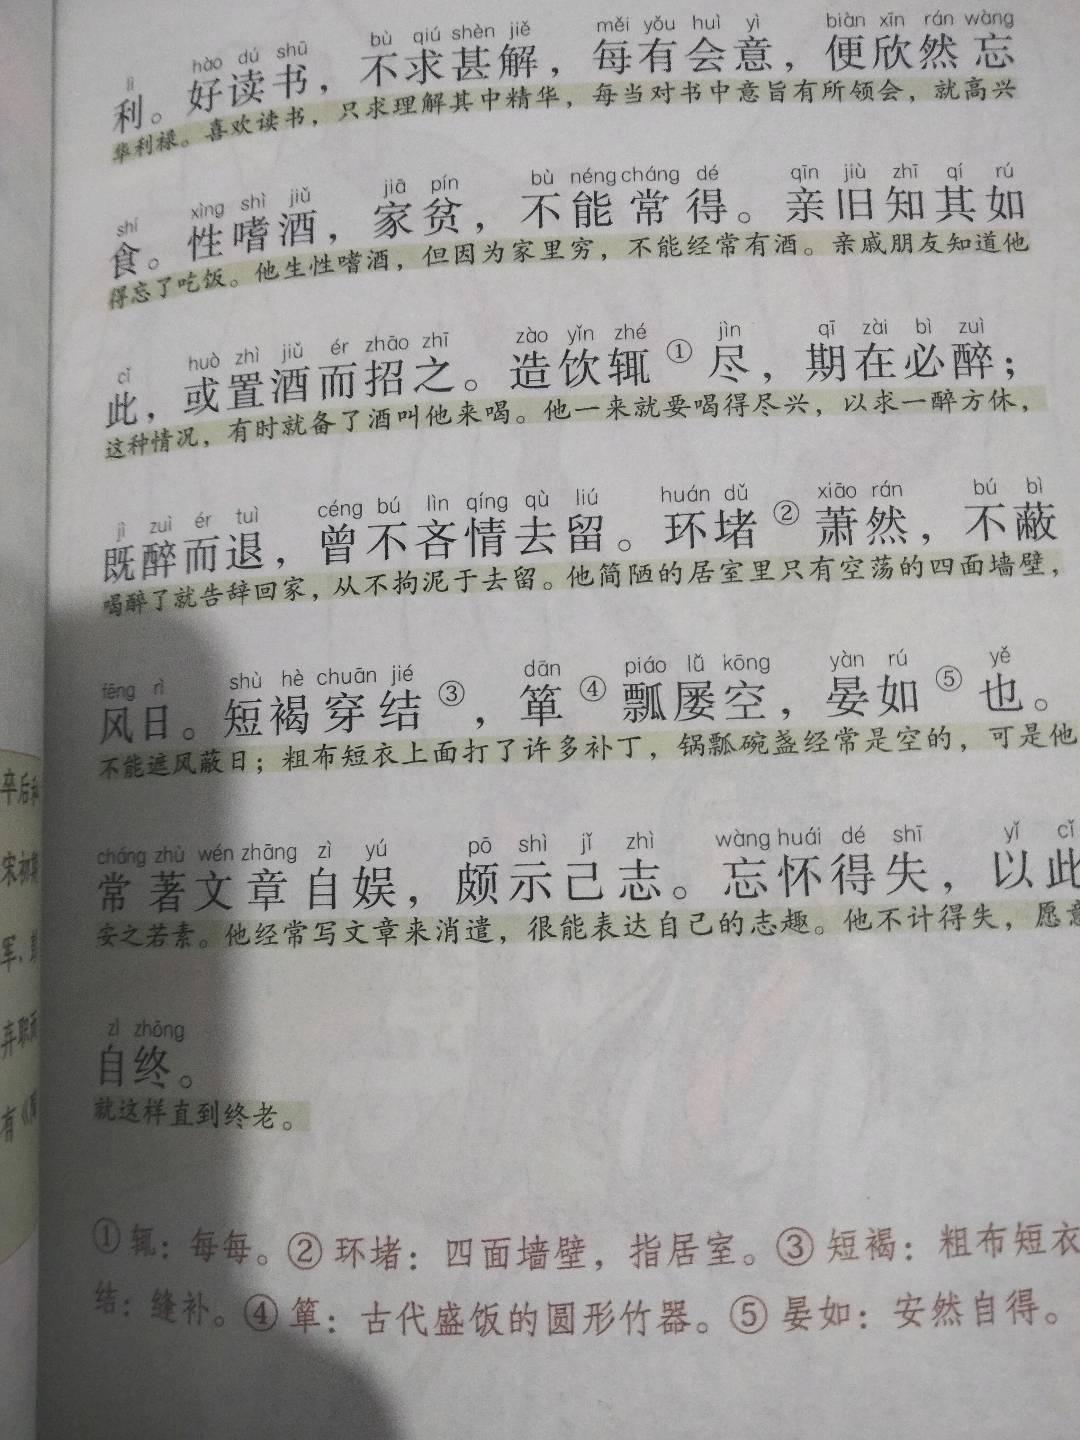 lì hào dú shū bù qiú shèn jiě měi yǒu huì yì biàn xīn rán wàng
利。好读书，不求甚解，每有会意，便欣然忘
华利禄。喜欢读书，只求理解其中精华，每当对书中意旨有所领会，就高兴
shí xìng shì jiǔ jiā pín bù néng cháng dé qīn jiù zhī qí rú
食。性嗜酒，家贫，不能常得。亲旧知其如
得忘了吃饭。他生性嗜酒，但因为家里穷，不能经常有酒。亲戚朋友知道他
cǐ huò zhì jiǔ ér zhāo zhī zào yǐn zhé jìn qī zài bì zuì
此，或置酒而招之。造饮辄①尽，期在必醉；
这种情况，有时就备了酒叫他来喝。他一来就要喝得尽兴，以求一醉方休，
jì zuì ér tuì céng bú lìn qíng qù liú huán dǔ xiāo rán bú bì
既醉而退，曾不吝情去留。环堵②萧然，不蔽
喝醉了就告辞回家，从不拘泥于去留。他简陋的居室里只有空荡的四面墙壁，
fēng rì shù hè chuān jié dān piáo lǚ kōng yàn rú yě
风日。短褐穿结③，箪④瓢屡空，晏如⑤也。
不能遮风蔽日；粗布短衣上面打了许多补丁，锅瓢碗盏经常是空的，可是他
cháng zhù wén zhāng zì yú pō shì jǐ zhì wàng huái dé shī yǐ cǐ
常著文章自娱，颇示己志。忘怀得失，以此
安之若素。他经常写文章来消遣，很能表达自己的志趣。他不计得失，愿意
zì zhōng
自终。
就这样直到终老。
①辄：每每。②环堵：四面墙壁，指居室。③短褐：粗布短衣
结：缝补。④箪：古代盛饭的圆形竹器。⑤晏如：安然自得。
卒后
宋初
军、
弃职
有《